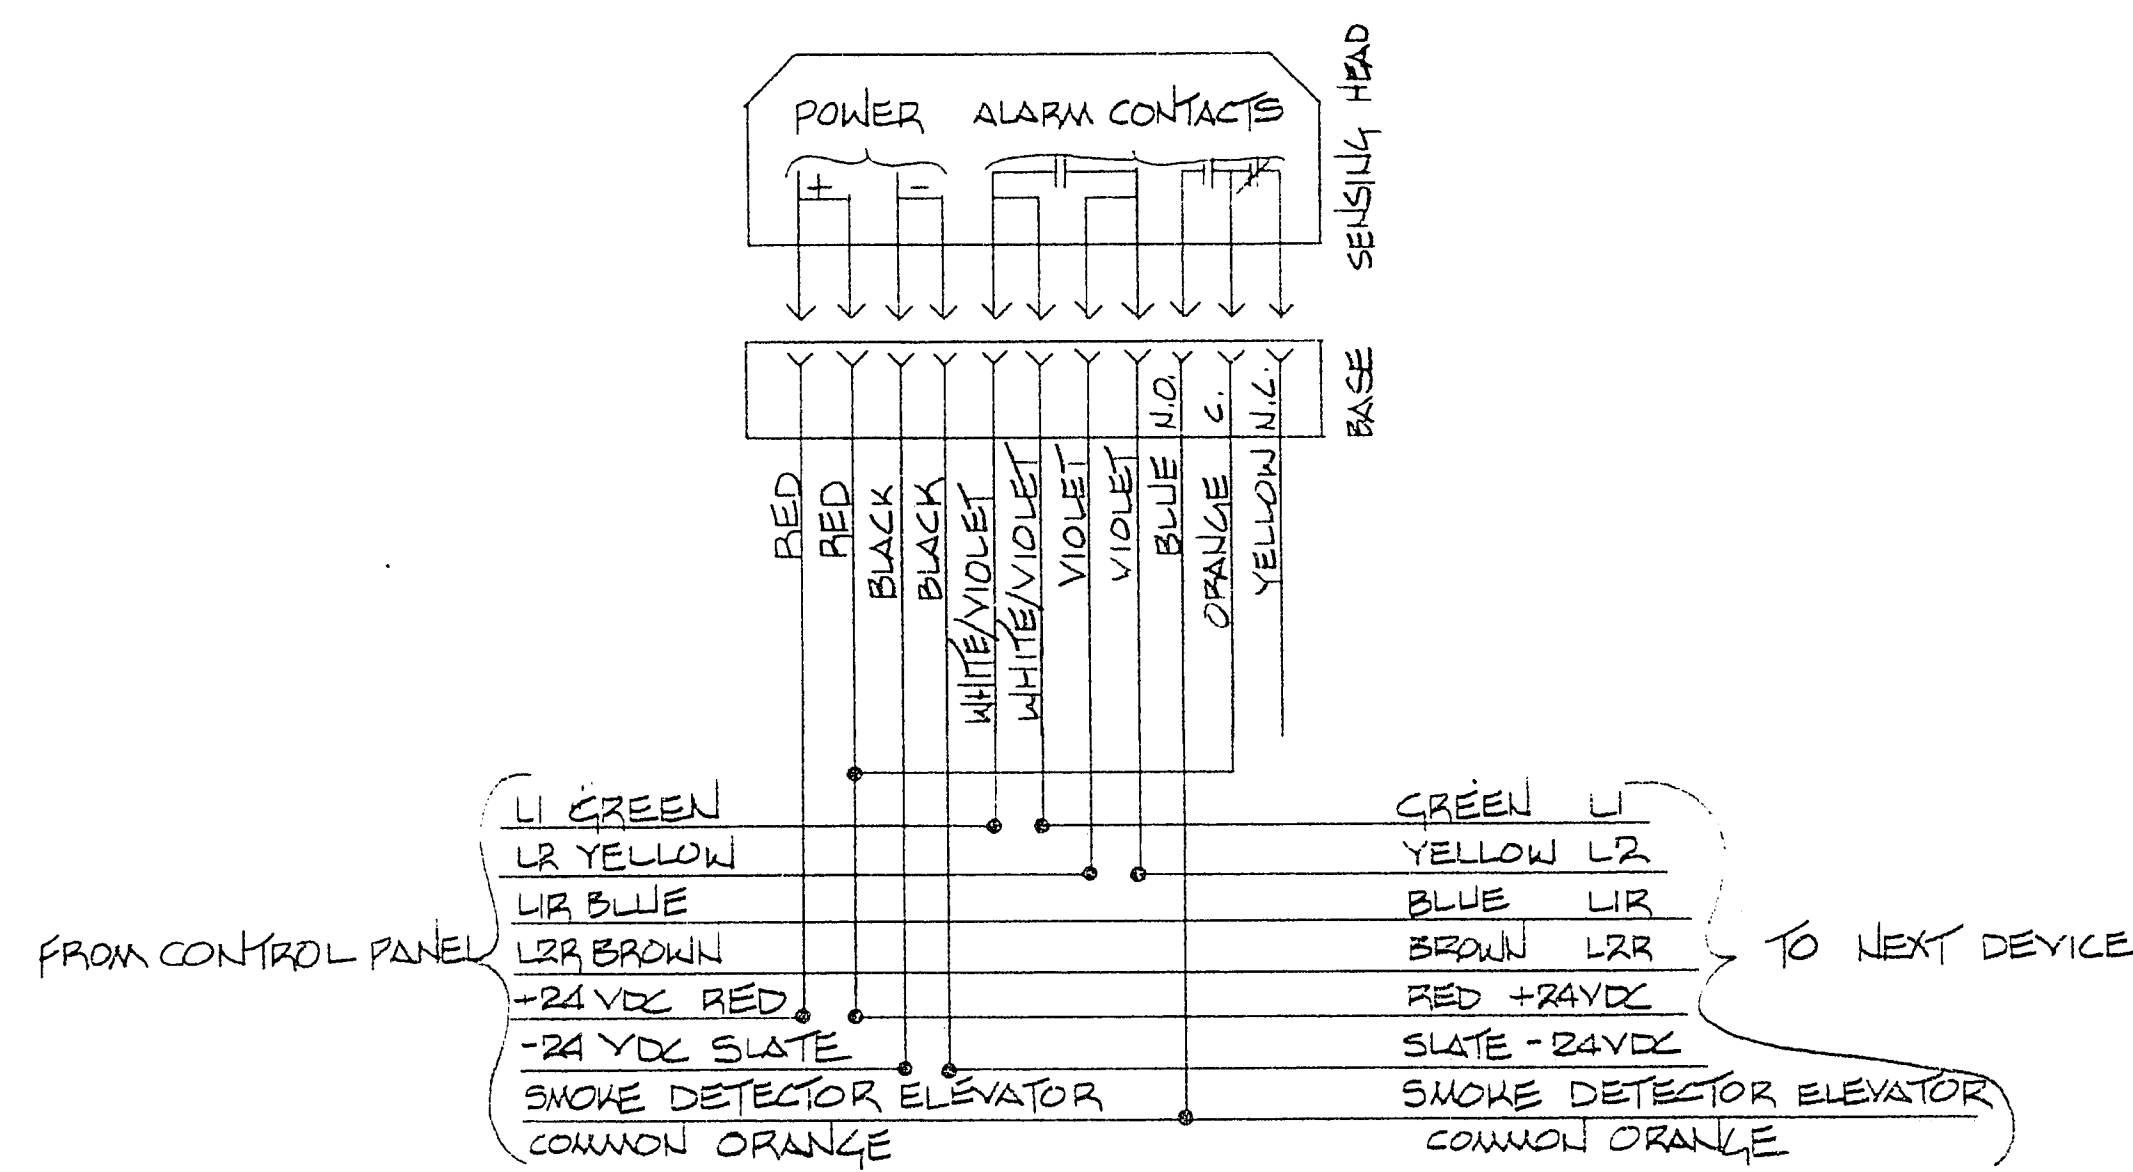 POWER ALARM CONTACTS
+ -
SENSING HEAD
BASE
N.O.
C.
N.C.
RED
RED
BLACK
BLACK
WHITE/VIOLET
WHITE/VIOLET
VIOLET
VIOLET
BLUE
ORANGE
YELLOW
FROM CONTROL PANEL
L1 GREEN
L2 YELLOW
L1R BLUE
L2R BROWN
+24 VDC RED
-24 VDC SLATE
SMOKE DETECTOR ELEVATOR
COMMON ORANGE
GREEN L1
YELLOW L2
BLUE L1R
BROWN L2R
RED +24VDC
SLATE -24VDC
SMOKE DETECTOR ELEVATOR
COMMON ORANGE
TO NEXT DEVICE